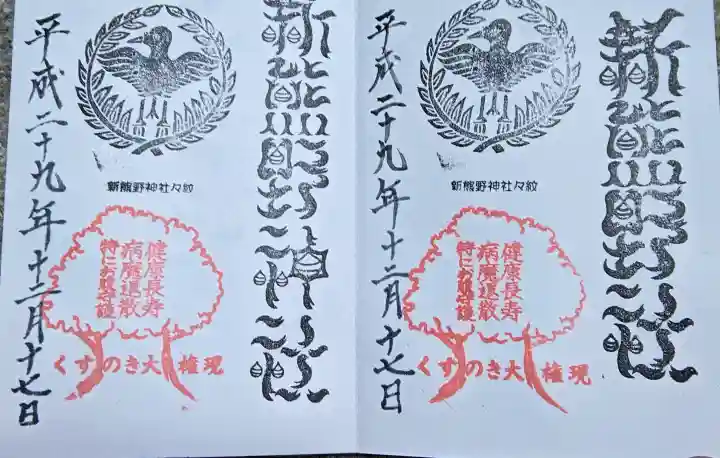 新熊野神社々紋
健康長寿
病魔退散
特にお腹守護
くすのき大権現
平成二十九年十二月十七日
新熊野神社々紋
健康長寿
病魔退散
特にお腹守護
くすのき大権現
平成二十九年十二月十七日